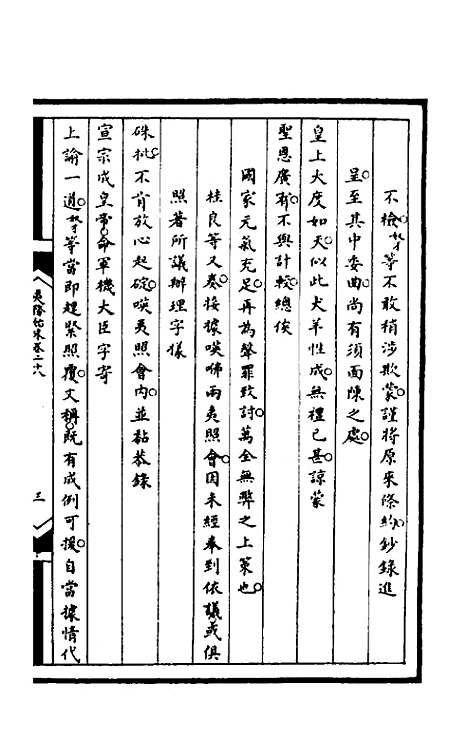 不檢奴才等不敢稍涉欺蒙謹將原來條約鈔錄進
呈至其中委曲尚有須面陳之處
皇上大度如天似此犬羊性成無禮已甚諒蒙
聖恩廣宥不與計較總俟
國家元氣充足再為聲罪致討萬全無弊之上策也
桂良等又奏接據𠸄咈兩夷照會因未經奉到依議或俱
照著所議辦理字樣
硃批不肯放心起碇𠸄夷照會內並黏恭錄
宣宗成皇帝命軍機大臣字寄
上諭一道奴才等當即趕緊照覆文稱既有成例可援自當據情代
三